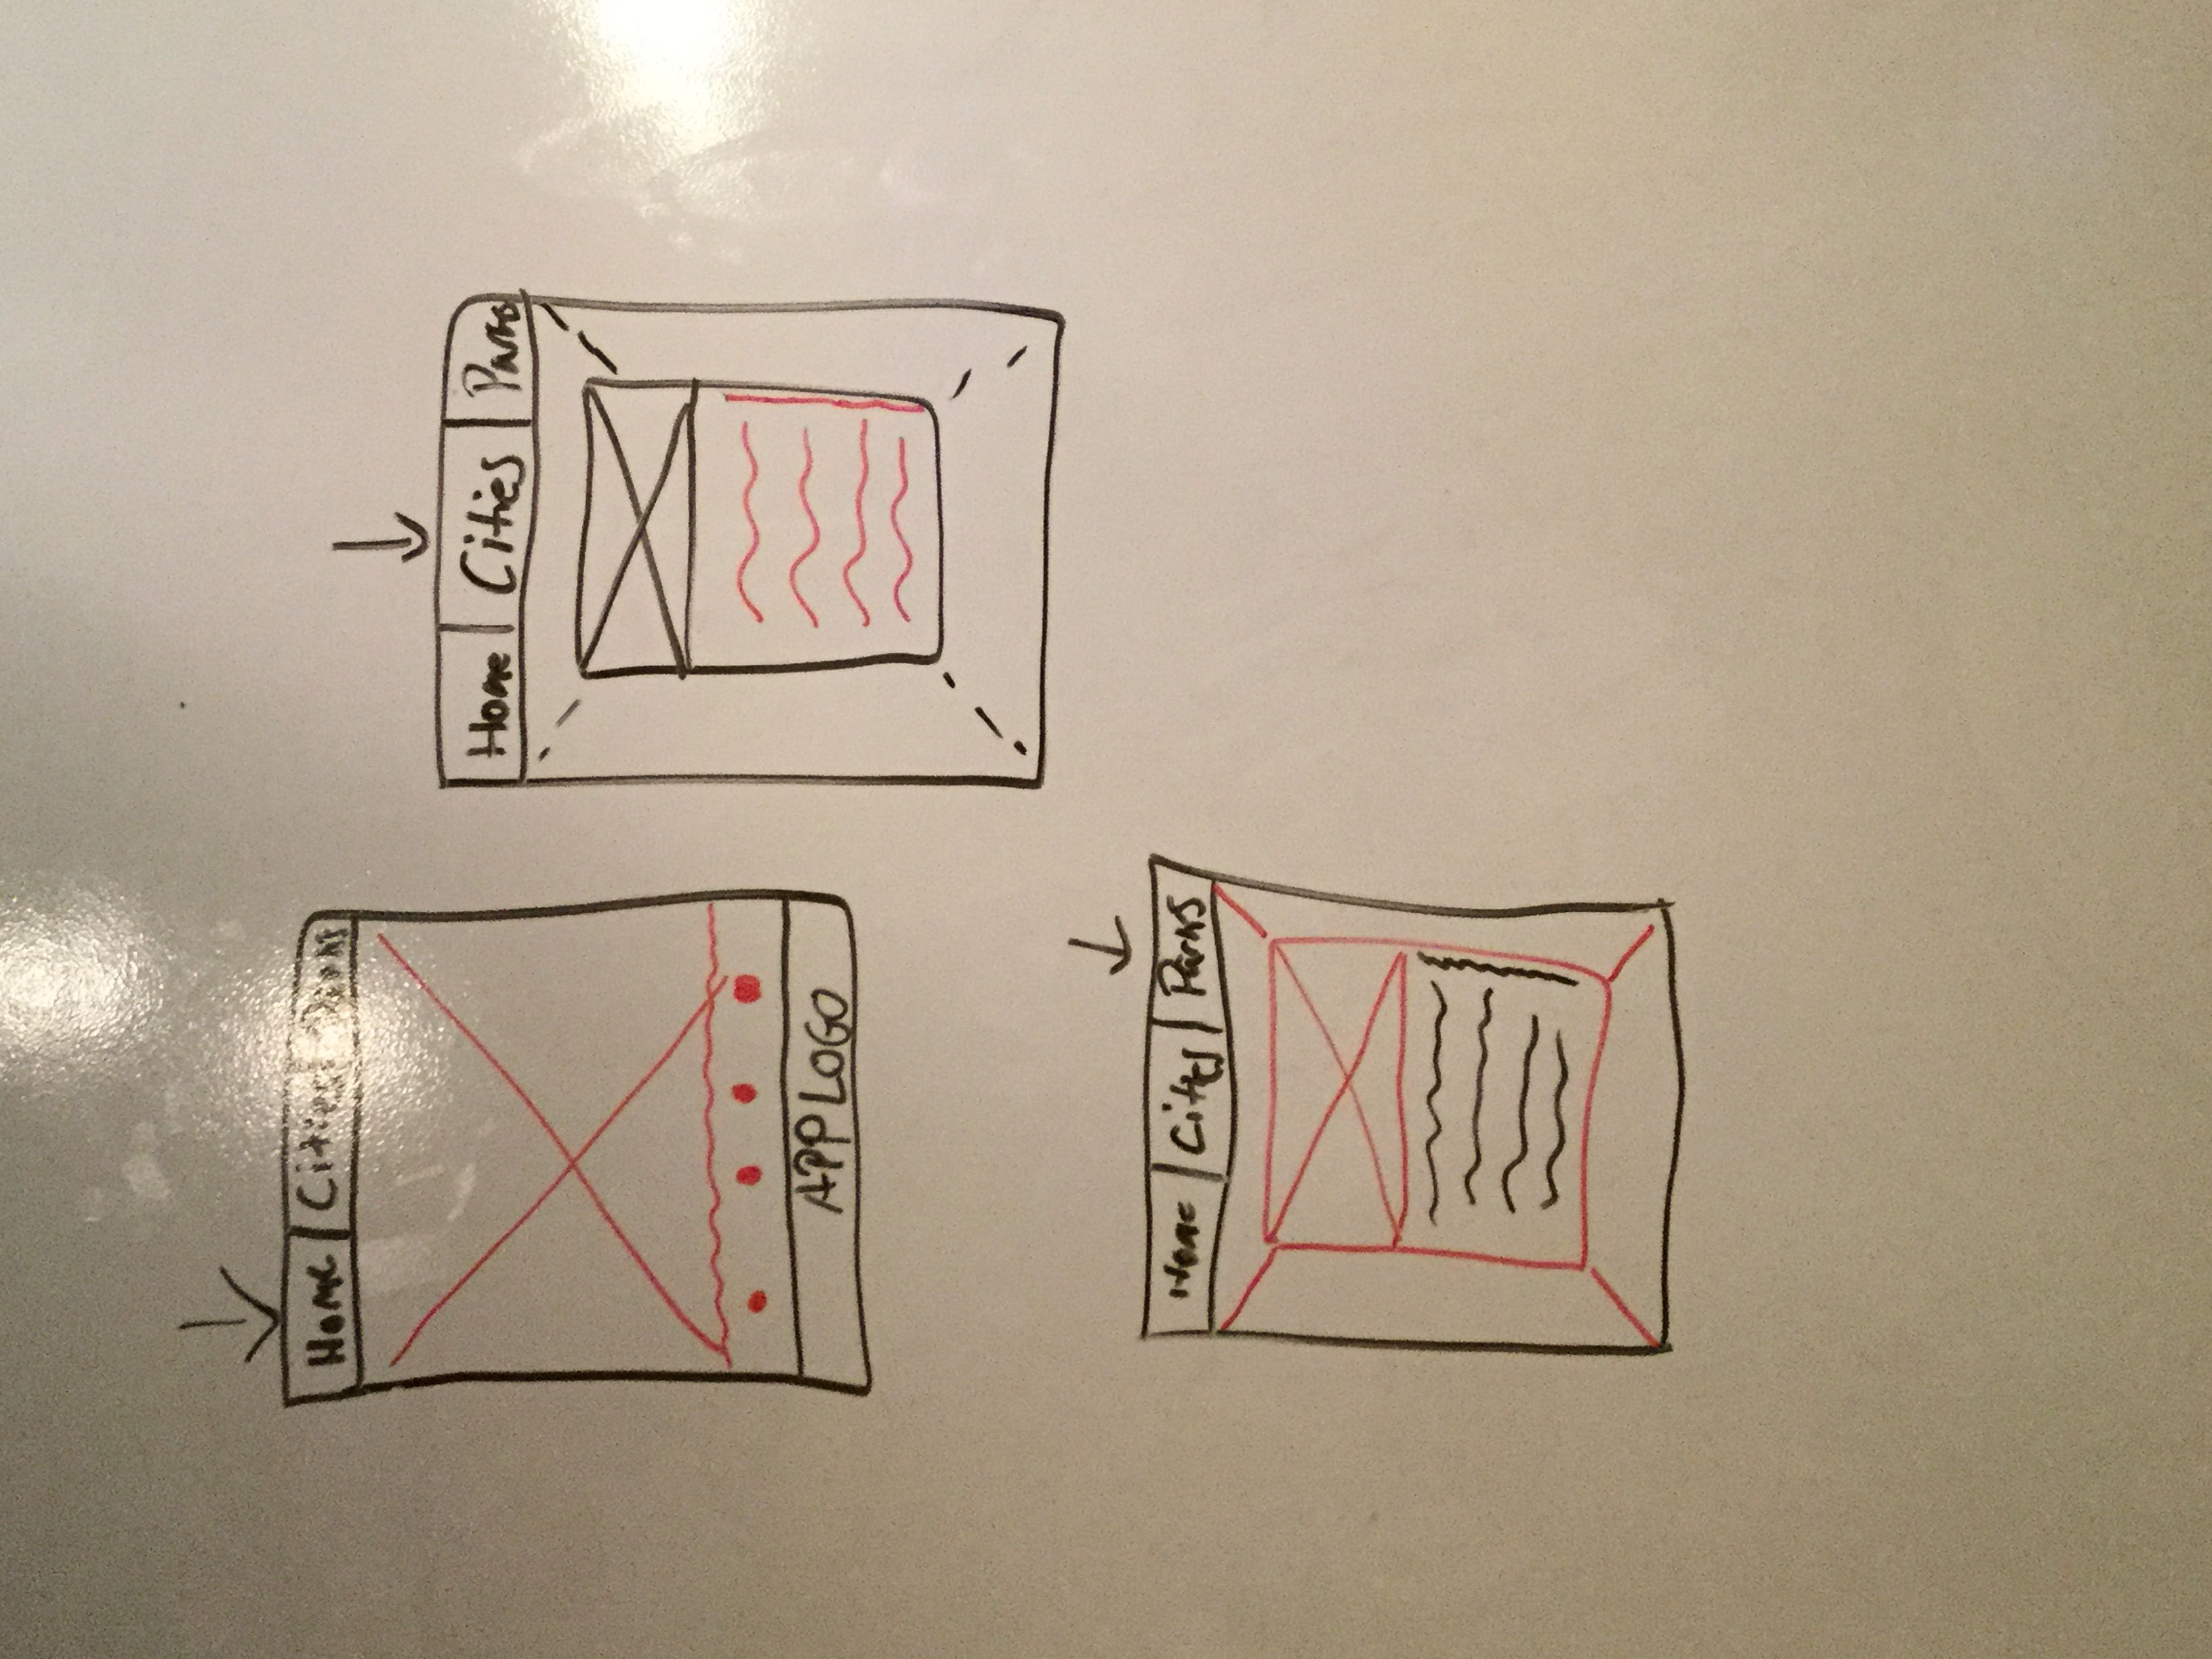 Home Cities Parks
APP LOGO
Home Cities Parks
Home Cities Parks